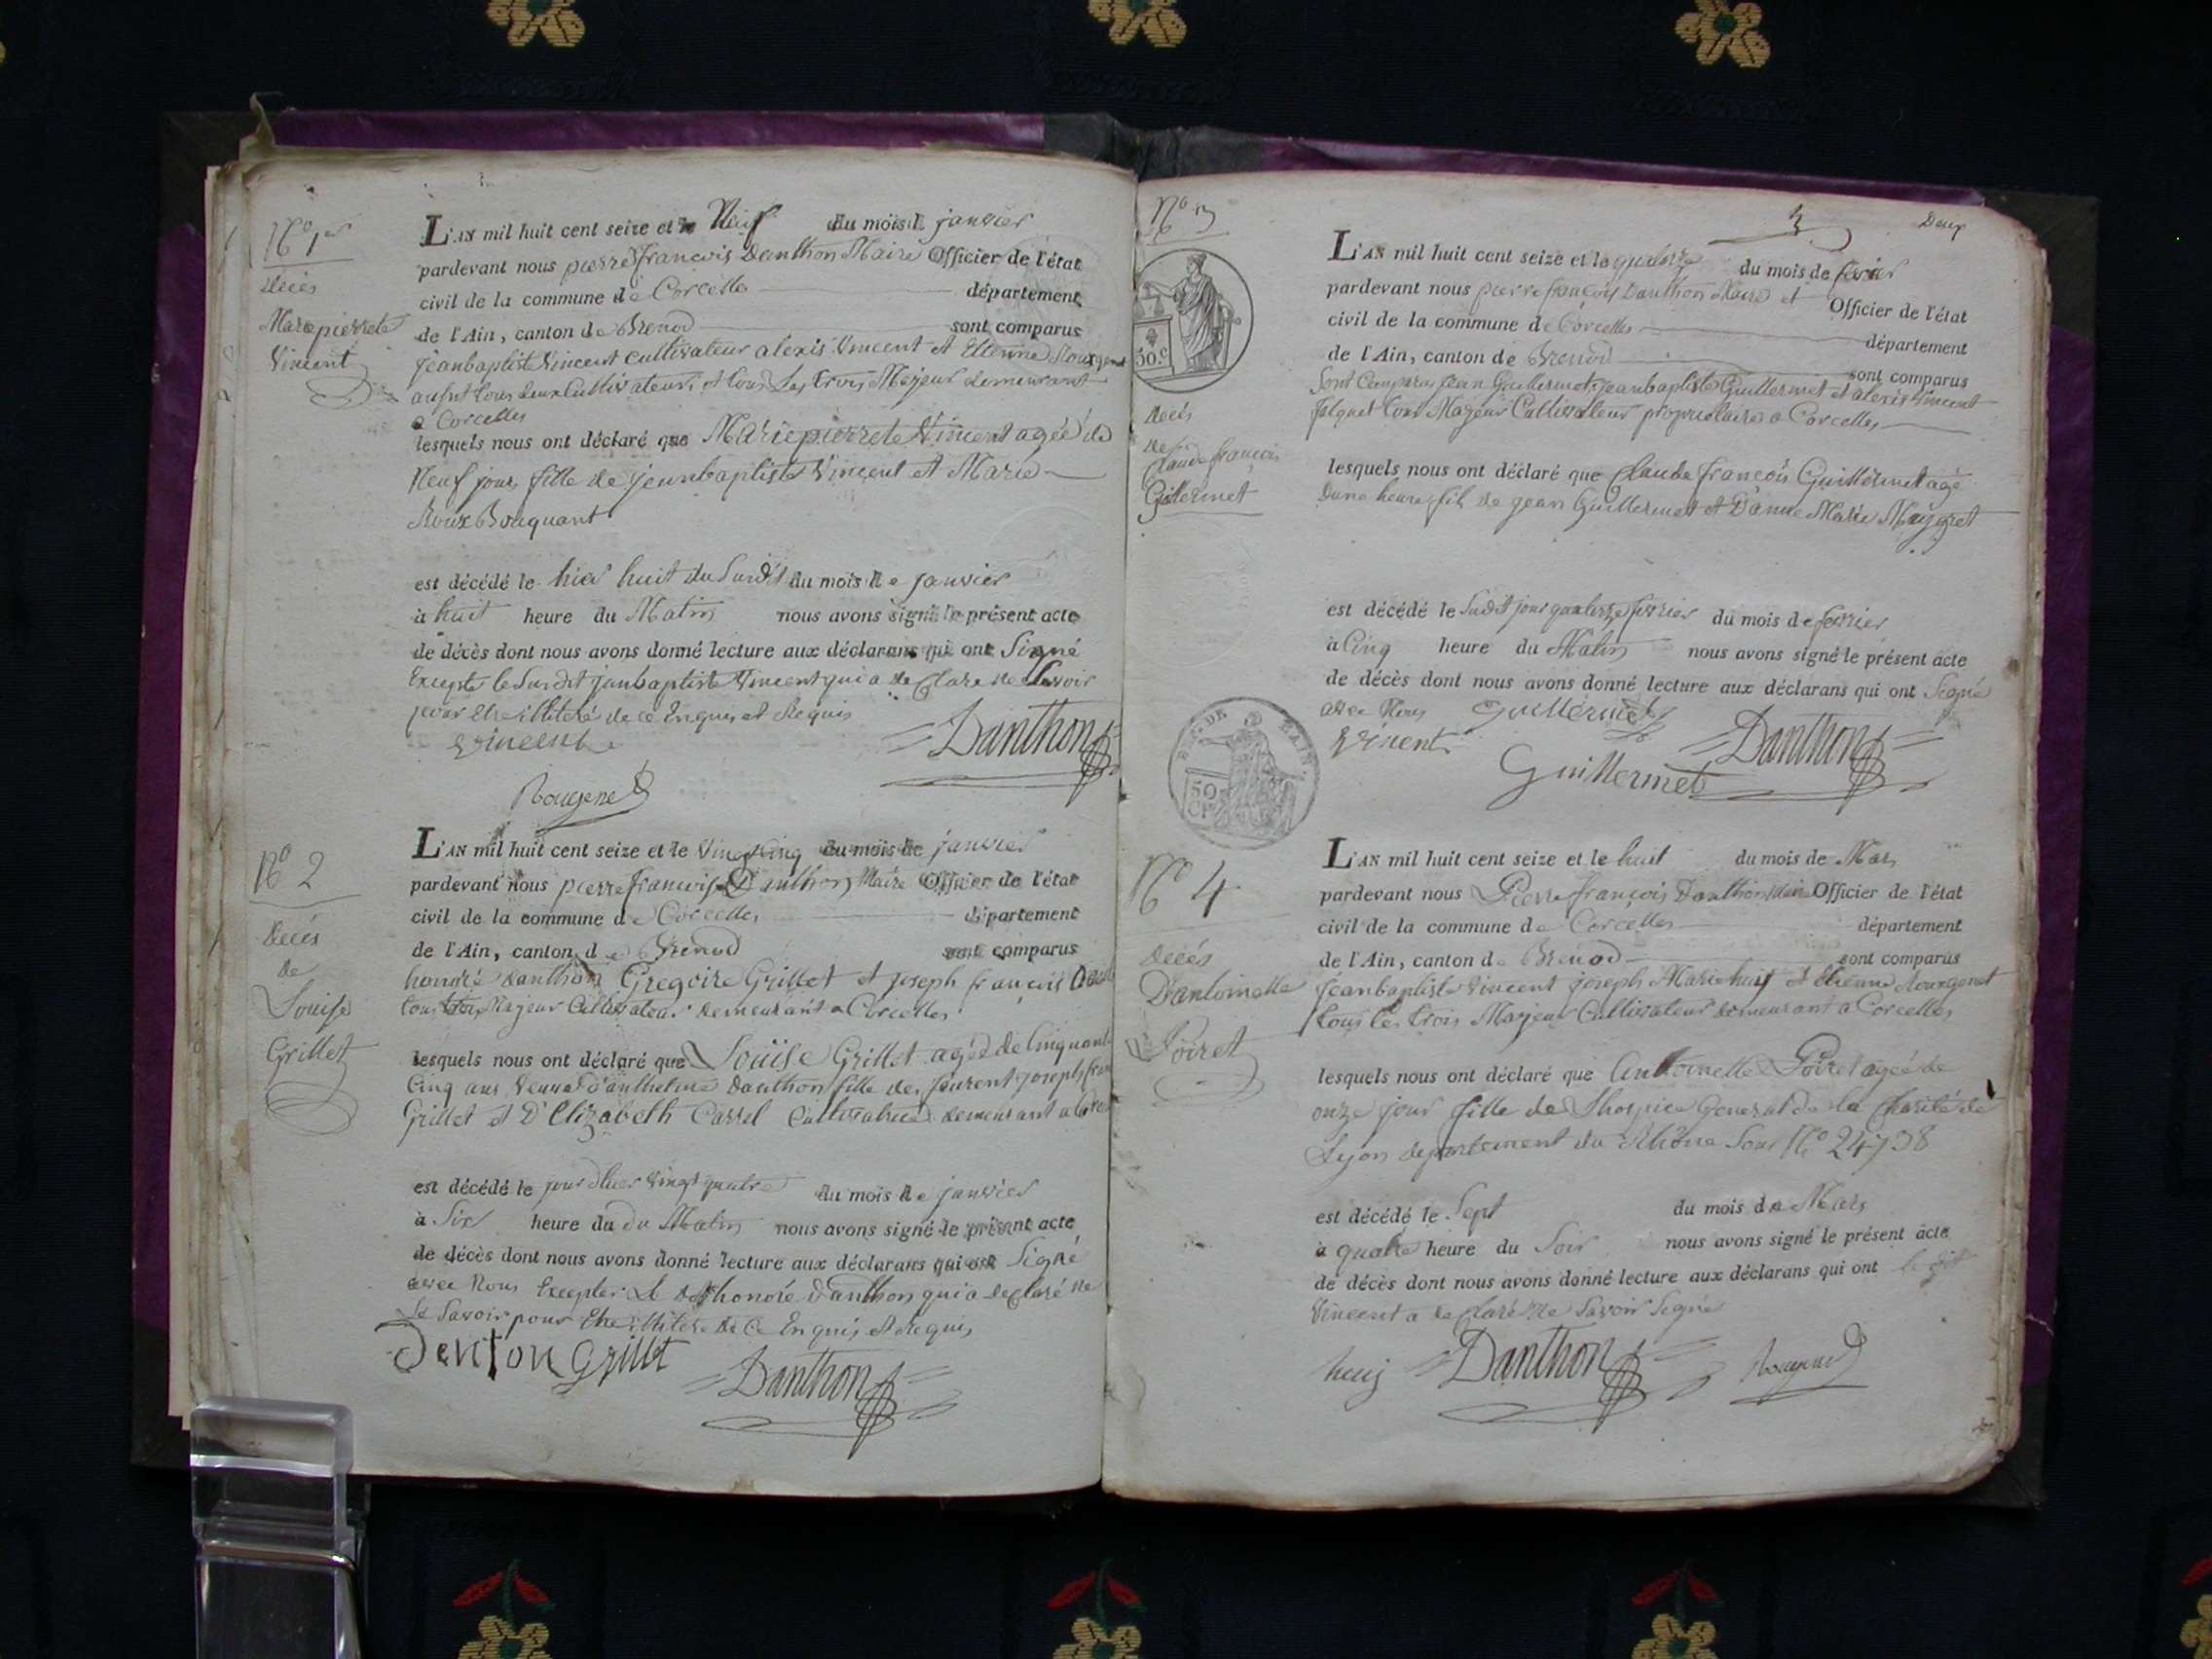 No 1er
Décés
Marie pierrete
Vincent
L'AN mil huit cent seize et le Neuf du mois de janvier
pardevant nous pierre francois Danthon Maire Officier de l'état
civil de la commune de Corcelles département
de l'Ain, canton de Brenod sont comparus
jeanbaptiste Vincent cultivateur alexis Vincent et Etienne Rougenet
aussi tous deux Cultivateurs et tous Les trois Majeur demeurant
a Corcelles
lesquels nous ont déclaré que Marie pierrete Vincent agée de
Neuf jours fille de jeanbaptiste Vincent et Marie
Roux Bouquant
est décédé le hier huit du Susdit du mois de janvier
à huit heure du Matin nous avons signé le présent acte
de décès dont nous avons donné lecture aux déclarans qui ont Signé
Excepté le Susdit janbaptiste Vincent qui a declaré ne Savoir
pour Etre illiteré de ce Enquis et Requis
Vincent
Danthon
Rougenet
No 2
Decés
de
Louise
Grillet
L'AN mil huit cent seize et le Vingt Cinq du mois de janvier
pardevant nous pierre francois Danthon Maire Officier de l'état
civil de la commune de Corcelles département
de l'Ain, canton de Brenod sont comparus
honoré Danthon Gregoire Grillet et joseph francois
tous trois Majeur Cultivateur demeurant a Corcelles
lesquels nous ont déclaré que Louise Grillet agée de Cinquante
Cinq ans Veuve d'anthelme Danthon fille de Laurent joseph
Grillet et D'Elizabeth Carrel Cultivatrice demeurant a
est décédé le jour d'hier Vingt quatre du mois de janvier
à Six heure du du Matin nous avons signé le présent acte
de décès dont nous avons donné lecture aux déclarans qui ont Signé
avec Nous Excepter Le dit honoré Danthon qui a declaré ne
Le Savoir pour Etre illiteré de Ce Enquis et Requis
Denton Grillet
Danthon
No 3
50 c
Decés
de
Claude françois
Guillermet
3
Deux
L'AN mil huit cent seize et le quatorze du mois de fevrier
pardevant nous pierre françois Danthon Maire et Officier de l'état
civil de la commune de Corcelles département
de l'Ain, canton de Brenod sont comparus
Sont Comparus jean Guillermet jeanbaptiste Guillermet et alexis Vincent
tous Majeur Cultivateur proprietaire a Corcelles
lesquels nous ont déclaré que Claude françois Guillermet agé
Dune heure fils de jean Guillermet et D'anne Marie
est décédé le Susdit jour quatorze fevrier du mois de fevrier
à Cinq heure du Matin nous avons signé le présent acte
de décès dont nous avons donné lecture aux déclarans qui ont Signé
avec Nous Guillermet
Vincent
Danthon
Guillermet
50
No 4
Decés
D'antoinette
Poiret
L'AN mil huit cent seize et le huit du mois de Mars
pardevant nous Pierre françois Danthon Maire Officier de l'état
civil de la commune de Corcelles département
de l'Ain, canton de Brenod sont comparus
jeanbaptiste Vincent joseph Marie huij et Etienne Rougenet
tous les trois Majeur Cultivateur demeurant a Corcelles
lesquels nous ont déclaré que Antoinette Poiret agée de
onze jour fille de Lhospice General de la Charité de
Lyon departement du Rhône Sous No 24738
est décédé le Sept du mois de Mars
à quatre heure du Soir nous avons signé le présent acte
de décès dont nous avons donné lecture aux déclarans qui ont le dit
Vincent a declaré Ne Savoir Signé
huij
Danthon
Rougenet